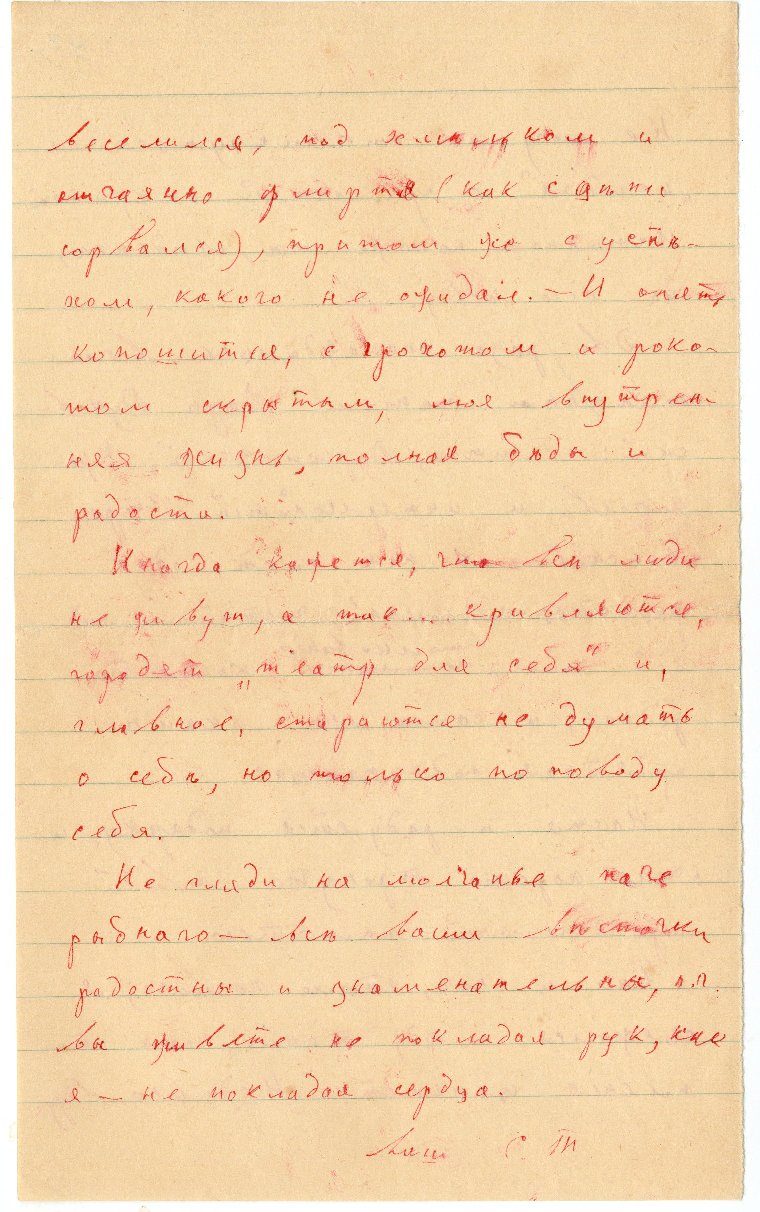 веселился, под хмѣльком и
отчаянно флиртя (как с цѣпи
сорвался), притом же с успѣ-
хом, какого не ожидал. — И опять
копошится, с грохотом и роко-
том скрытым, моя внутрен-
няя жизнь, полная бѣды и
радости.
Иногда кажется, что всѣ люди
не живут, а так... кривляются,
городят „театр для себя" и,
главное, стараются не думать
о себѣ, но только по поводу
себя.
Не гляди на молчанье паче
рыбнаго — всѣ ваши вѣсточки
радостны и знаменательны, п.ч.
вы живете не покладая рук, как
я — не покладая сердца.
Ваш С Т